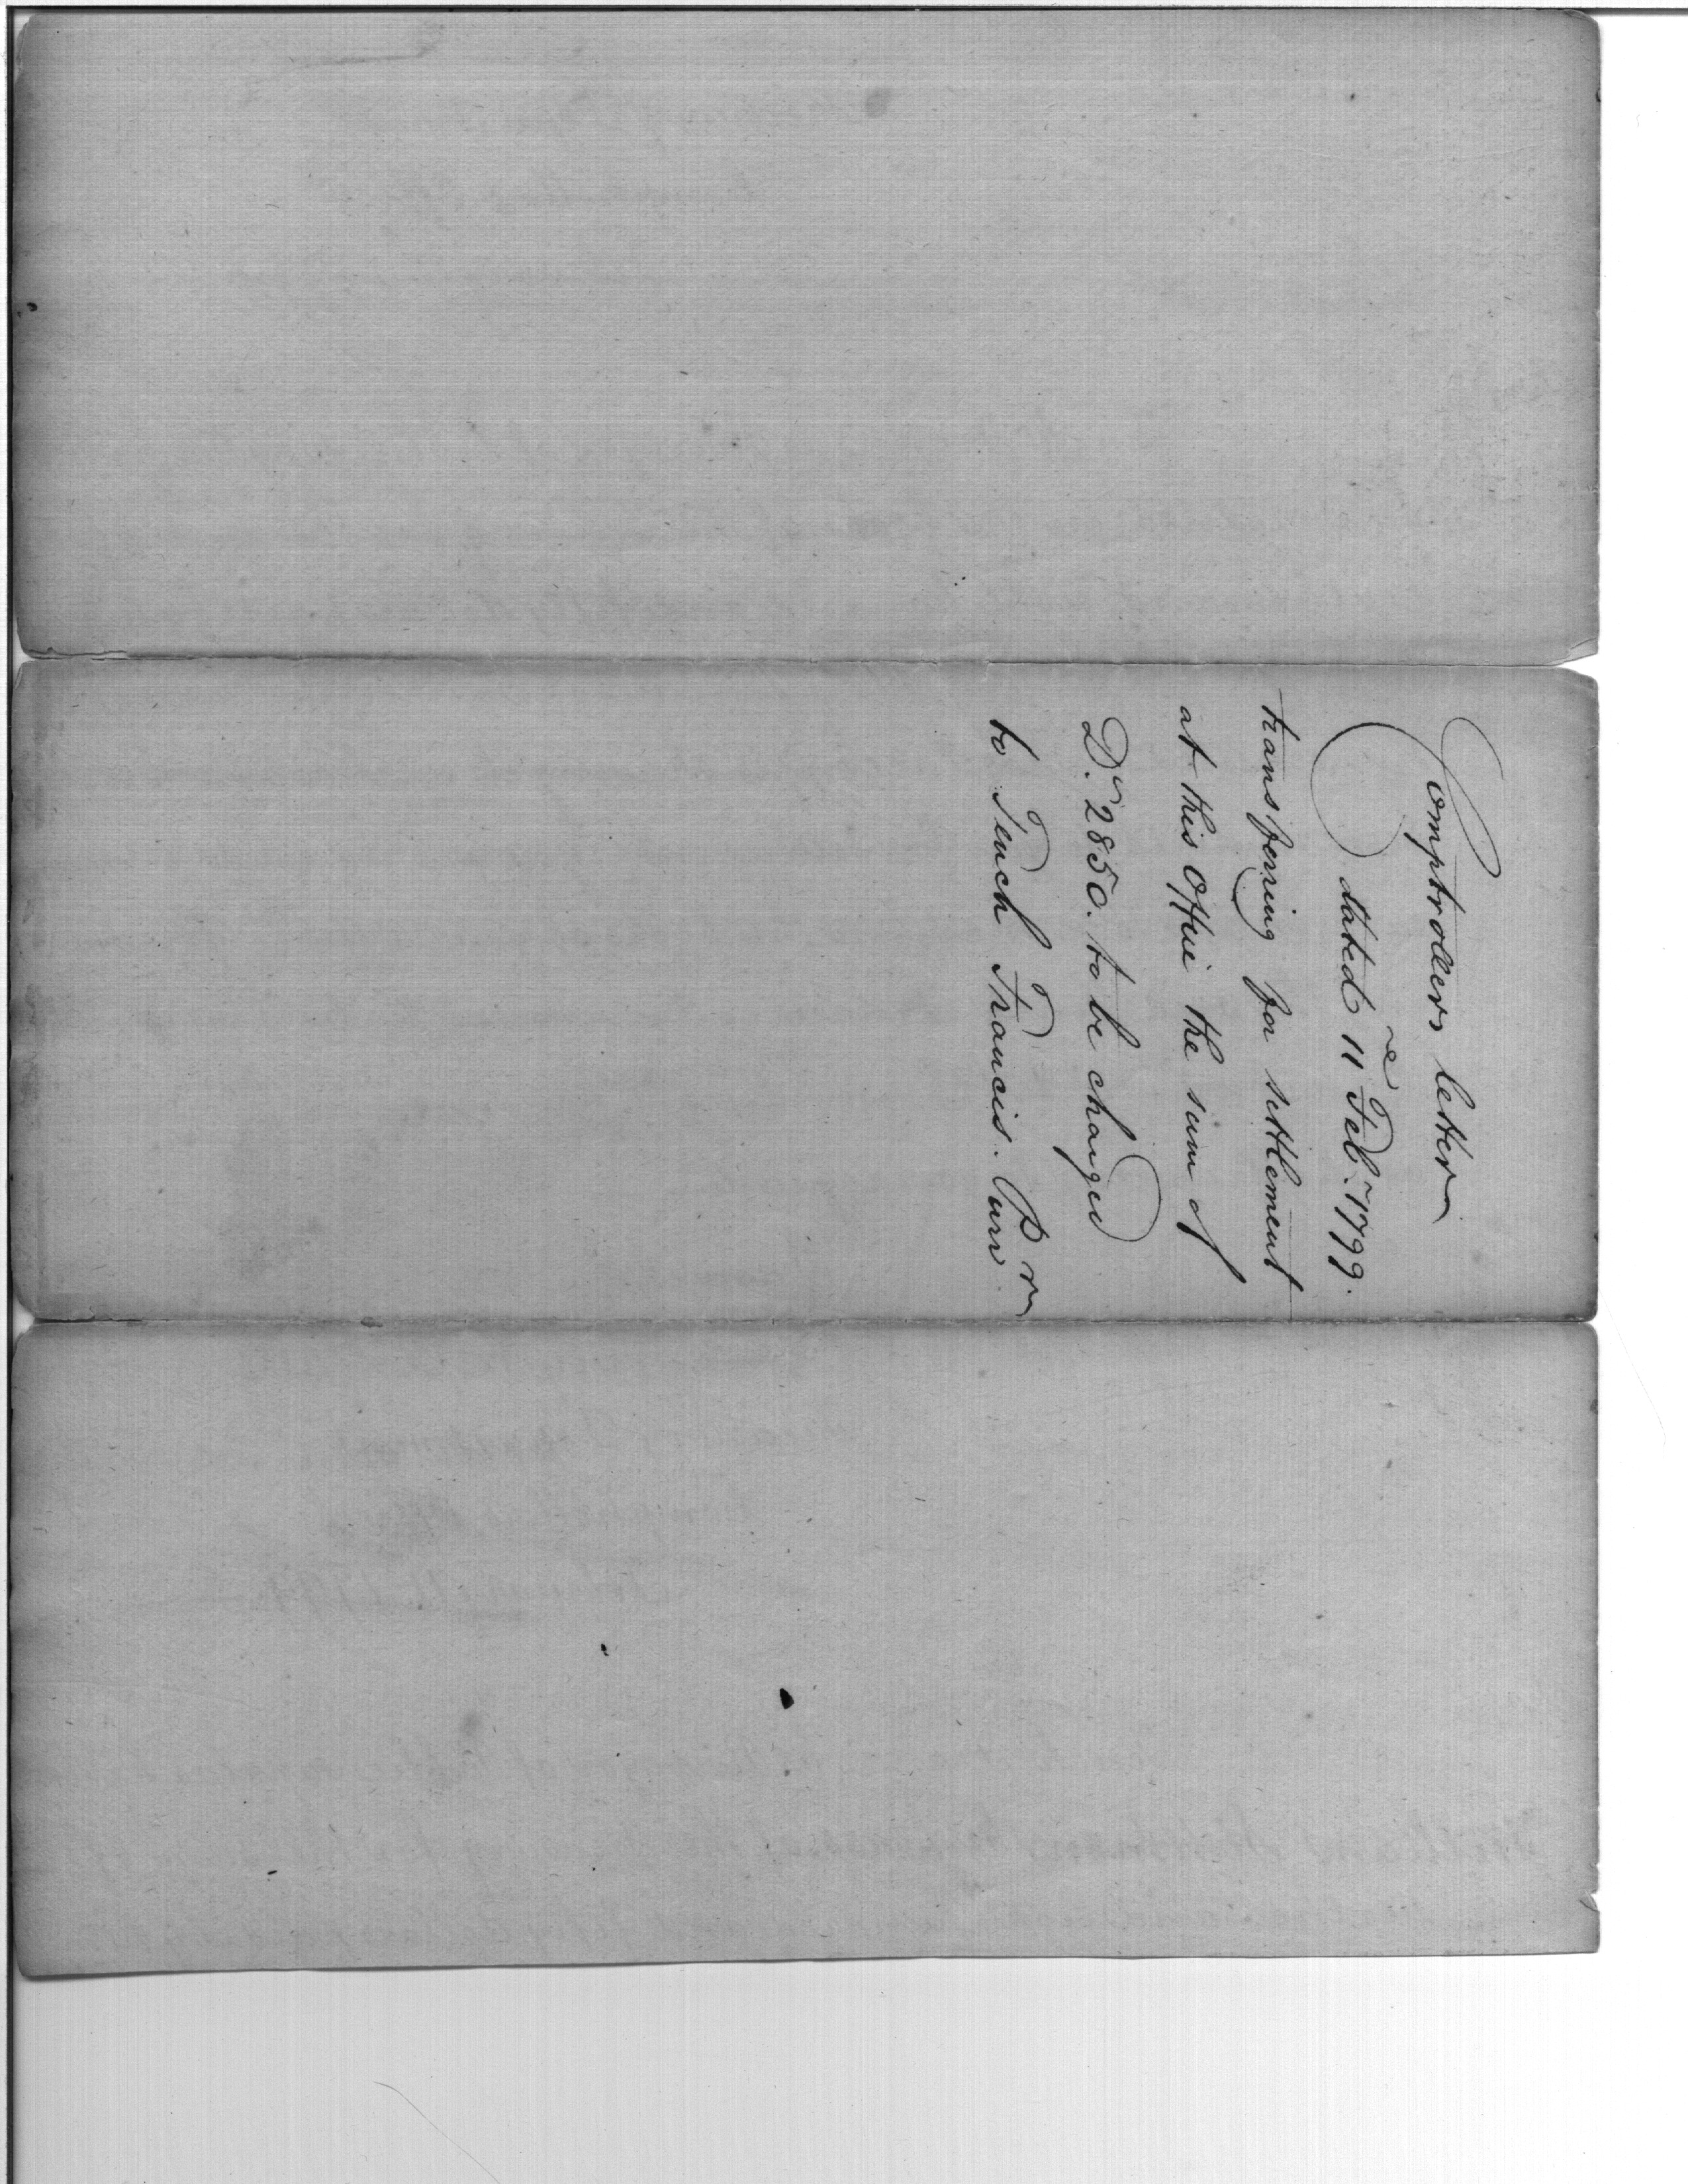 Comptrollers letter
dated 11 Feb. 1799.
transferring for settlement
at this Office the sum of
D.rs 2850. to be charged
to Tench Francis. Purv.r